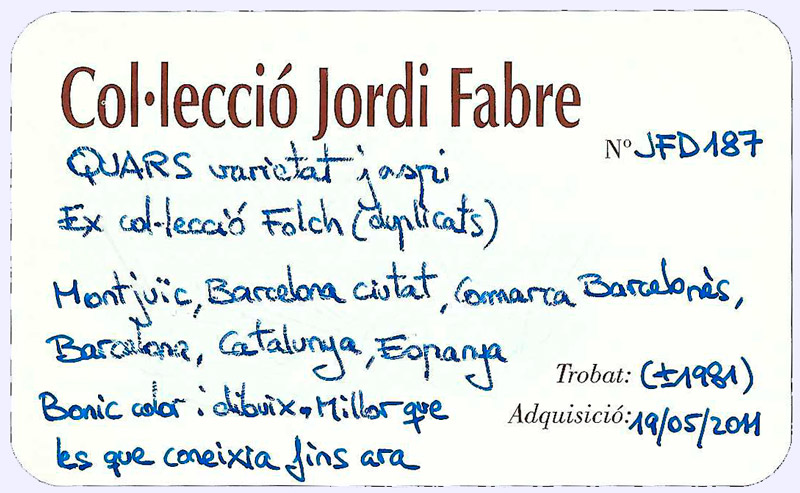 Col·lecció Jordi Fabre
Nº JFD187
QUARS varietat jaspi
Ex col·lecció Folch (duplicats)
Montjuïc, Barcelona ciutat, Comarca Barcelonès,
Barcelona, Catalunya, Espanya
Trobat: (±1981)
Bonic color i dibuix. Millor que
Adquisició: 19/05/2011
les que coneixia fins ara